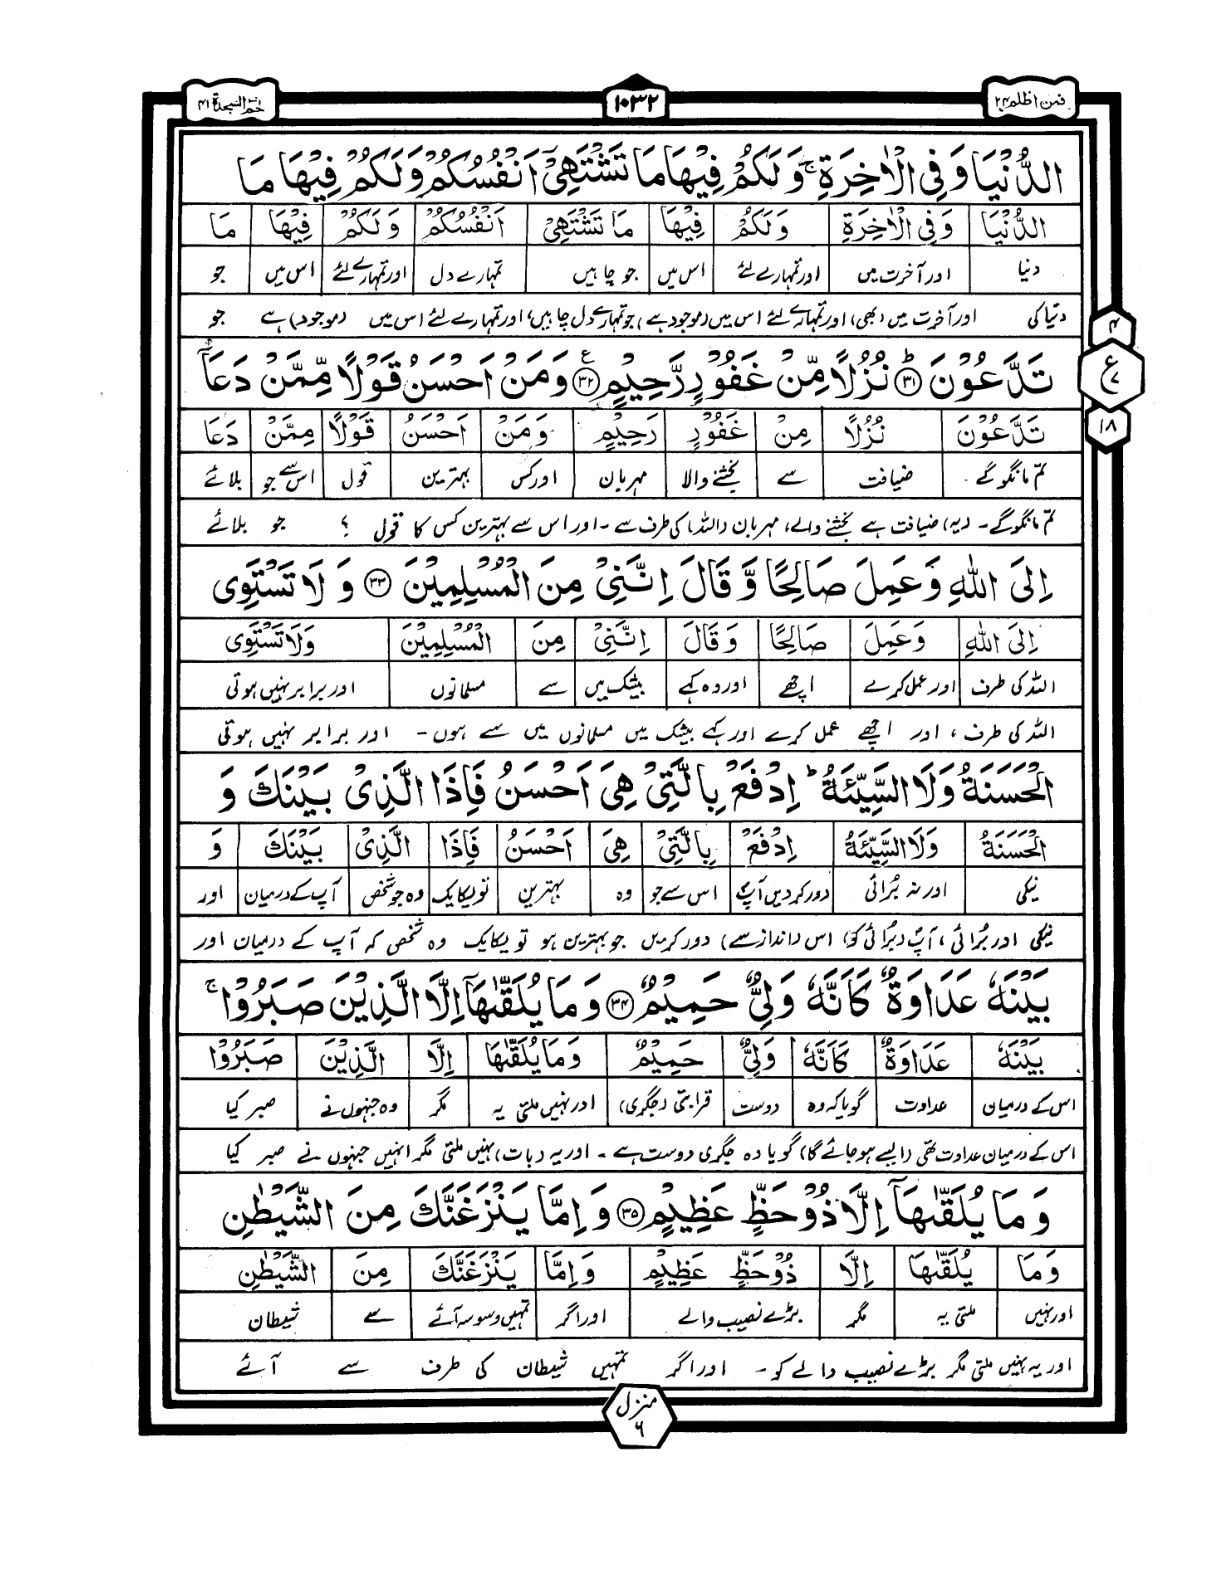 فمن اظلم ۲۴
۱۰۳۲
حٰم السجدة ۴۱
الدُّنْيَا وَفِي الْاٰخِرَةِ ۚ وَلَكُمْ فِيْهَا مَا تَشْتَهِيْٓ اَنْفُسُكُمْ وَلَكُمْ فِيْهَا مَا
الدُّنْيَا وَفِي الْاٰخِرَةِ وَلَكُمْ فِيْهَا مَا تَشْتَهِيْٓ اَنْفُسُكُمْ وَلَكُمْ فِيْهَا مَا
دنیا اور آخرت میں اور تمہارے لئے اس میں جو چاہیں تمہارے دل اور تمہارے لئے اس میں جو
دنیا کی اور آخرت میں (بھی) اور تمہارے لئے اس میں (موجود ہے) جو تمہارے دل چاہیں، اور تمہارے لئے اس میں (موجود) ہے جو
تَدَّعُوْنَ ؕ۳۱ نُزُلًا مِّنْ غَفُوْرٍ رَّحِيْمٍ ۳۲ۧ وَمَنْ اَحْسَنُ قَوْلًا مِّمَّنْ دَعَآ
۴
ع
۷
۱۸
تَدَّعُوْنَ نُزُلًا مِنْ غَفُوْرٍ رَحِيْمٍ وَمَنْ اَحْسَنُ قَوْلًا مِمَّنْ دَعَا
تم مانگو گے ضیافت سے بخشنے والا مہربان اور کس بہترین قول اس سے جو بلائے
تم مانگو گے۔ (یہ) ضیافت ہے بخشنے والے، مہربان (اللہ) کی طرف سے۔ اور اس سے بہترین کس کا قول ؟ جو بلائے
اِلَى اللّٰهِ وَعَمِلَ صَالِحًا وَّقَالَ اِنَّنِيْ مِنَ الْمُسْلِمِيْنَ ۳۳ وَلَا تَسْتَوِى
اِلَى اللّٰهِ وَعَمِلَ صَالِحًا وَقَالَ اِنَّنِيْ مِنَ الْمُسْلِمِيْنَ وَلَا تَسْتَوِى
اللہ کی طرف اور عمل کرے اچھے اور وہ کہے بیشک میں سے مسلمانوں اور برابر نہیں ہوتی
اللہ کی طرف، اور اچھے عمل کرے اور کہے بیشک میں مسلمانوں میں سے ہوں۔ اور برابر نہیں ہوتی
الْحَسَنَةُ وَلَا السَّيِّئَةُ ؕ اِدْفَعْ بِالَّتِيْ هِيَ اَحْسَنُ فَاِذَا الَّذِيْ بَيْنَكَ وَ
الْحَسَنَةُ وَلَا السَّيِّئَةُ اِدْفَعْ بِالَّتِيْ هِيَ اَحْسَنُ فَاِذَا الَّذِيْ بَيْنَكَ وَ
نیکی اور نہ بُرائی دور کر دیں آپ اس سے جو وہ بہترین تو یکایک وہ جو شخص آپ کے درمیان اور
نیکی اور بُرائی، آپ (برائی کو) اس (انداز سے) دور کریں جو بہترین ہو تو یکایک وہ شخص کہ آپ کے درمیان اور
بَيْنَهٗ عَدَاوَةٌ كَاَنَّهٗ وَلِيٌّ حَمِيْمٌ ۳۴ وَمَا يُلَقّٰىهَآ اِلَّا الَّذِيْنَ صَبَرُوْا ۚ
بَيْنَهٗ عَدَاوَةٌ كَاَنَّهٗ وَلِيٌّ حَمِيْمٌ وَمَا يُلَقّٰىهَا اِلَّا الَّذِيْنَ صَبَرُوْا
اس کے درمیان عداوت گویا کہ وہ دوست قرابتی (جگری) اور نہیں ملتی یہ مگر وہ جنہوں نے صبر کیا
اس کے درمیان عداوت تھی (ایسے ہو جائے گا) گویا وہ جگری دوست ہے۔ اور یہ (بات) نہیں ملتی مگر انہیں جنہوں نے صبر کیا
وَمَا يُلَقّٰىهَآ اِلَّا ذُوْ حَظٍّ عَظِيْمٍ ۳۵ وَاِمَّا يَنْزَغَنَّكَ مِنَ الشَّيْطٰنِ
وَمَا يُلَقّٰىهَا اِلَّا ذُوْ حَظٍّ عَظِيْمٍ وَاِمَّا يَنْزَغَنَّكَ مِنَ الشَّيْطٰنِ
اور نہیں ملتی یہ مگر بڑے نصیب والے اور اگر تمہیں وسوسہ آئے سے شیطان
اور یہ نہیں ملتی مگر بڑے نصیب والے کو۔ اور اگر تمہیں شیطان کی طرف سے آئے
منزل ۶